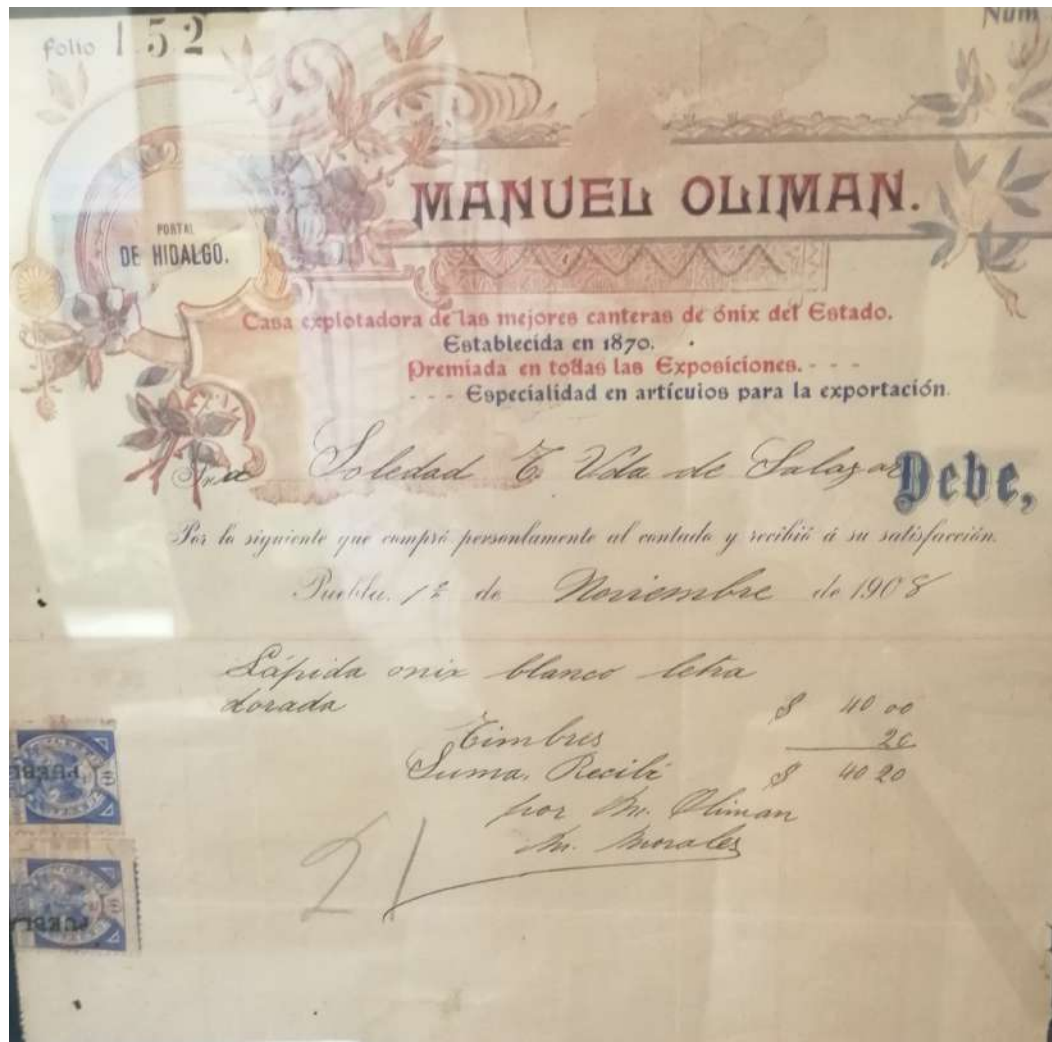 Folio 152
Núm
PORTAL
DE HIDALGO.
MANUEL OLIMAN.
Casa explotadora de las mejores canteras de ónix del Estado.
Establecida en 1870.
Premiada en todas las Exposiciones. - - -
- - - Especialidad en artículos para la exportación.
Sra Soledad T. Vda de Salazar Debe,
Por lo siguiente que compró personlamente al contado y recibió á su satisfacción.
Puebla, 1º de Noviembre de 1908
Lápida onix blanco letra
dorada $ 40 00
Timbres 20
Suma. Recibí $ 40 20
por M. Oliman
M. Morales
21
PUEBLA
PUEBL